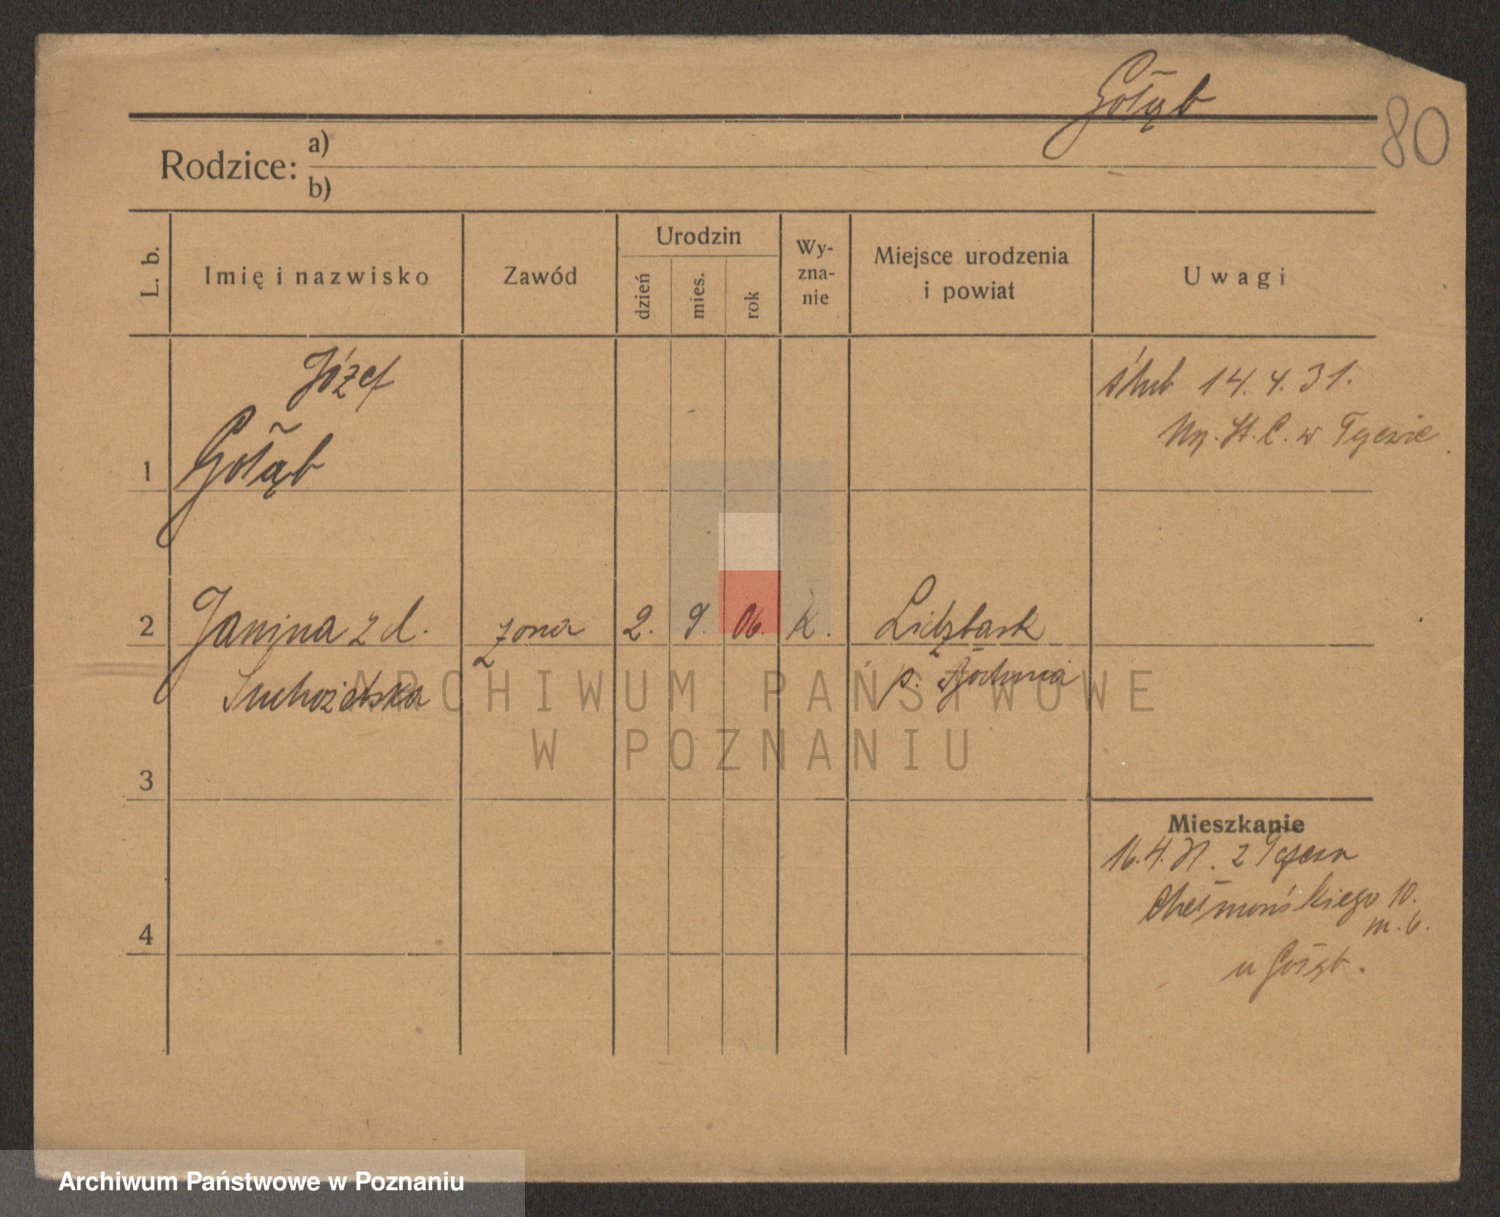 Gołąb
80
Rodzice: a)
b)
L. b.
Imię i nazwisko
Zawód
Urodzin
dzień
mies.
rok
Wy-
zna-
nie
Miejsce urodzenia
i powiat
Uwagi
Józef
1 Gołąb
ślub 14.4.31.
w
2 Janina z d. żona 2. 9. 06. k. Lidzbark
p.
3
4
Mieszkanie
16.4.31. z
Chełmońskiego 10.
m. 6.
u Gołąb.
ARCHIWUM PAŃSTWOWE
W POZNANIU
Archiwum Państwowe w Poznaniu